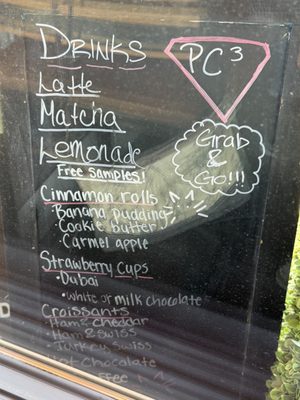 Drinks
PC³
Latte
Matcha
Lemonade
Grab
&
Go!!!
Free Samples!
Cinnamon rolls
·Banana pudding
·Cookie butter
·Carmel apple
Strawberry Cups
·Dubai
·white or milk chocolate
Croissants
·Ham & cheddar
·Ham & swiss
·Turkey swiss
Hot chocolate